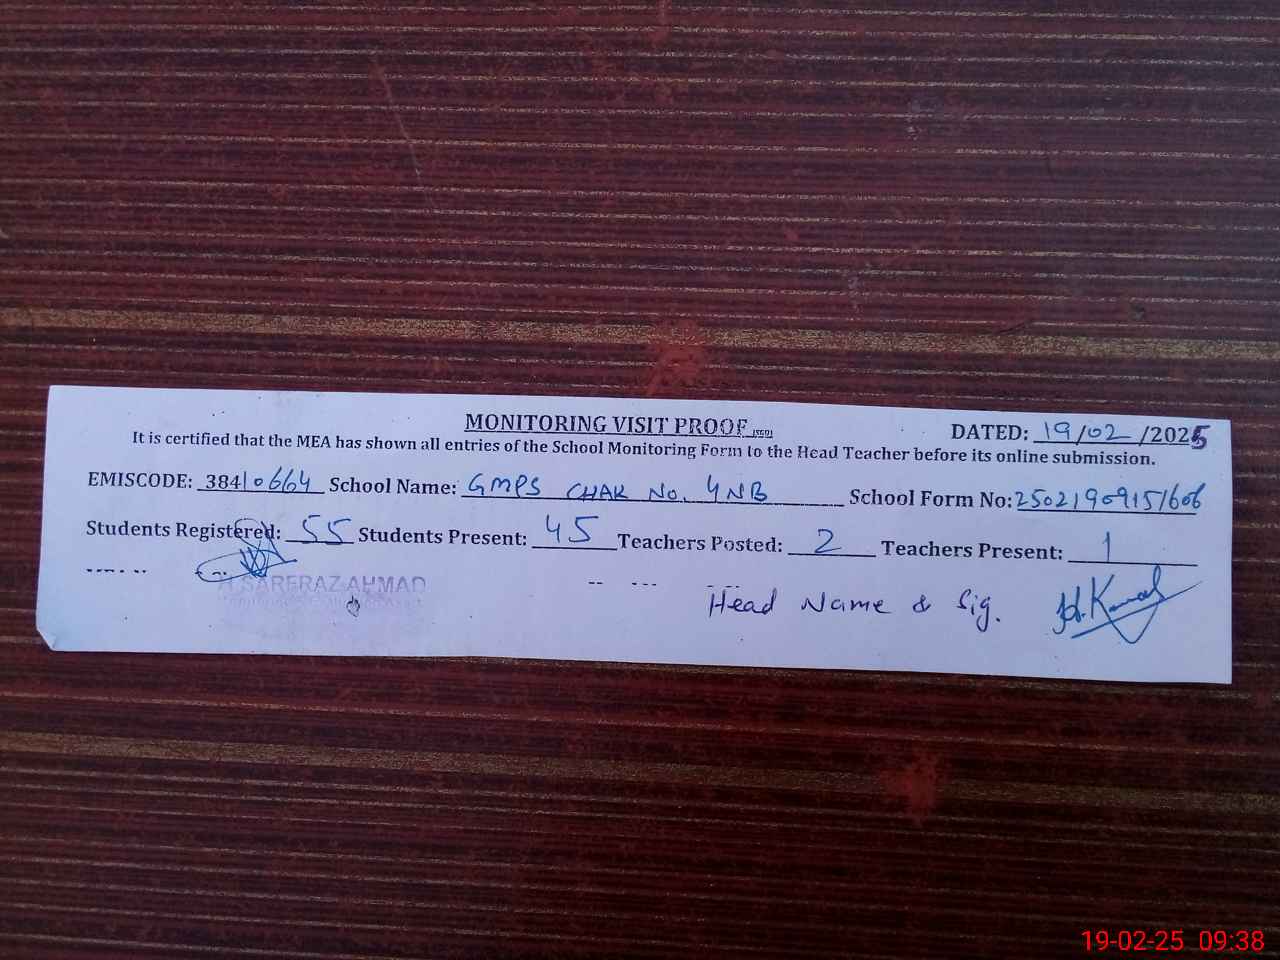 MONITORING VISIT PROOF (SGD)
DATED: 19/02/2025
It is certified that the MEA has shown all entries of the School Monitoring Form to the Head Teacher before its online submission.
EMISCODE: 38410664 School Name: GMPS CHAK No. 4NB School Form No: 25021909151606
Students Registered: 55 Students Present: 45 Teachers Posted: 2 Teachers Present: 1
SARFRAZ AHMAD
Head Name & Sig. H. Kamal
19-02-25 09:38